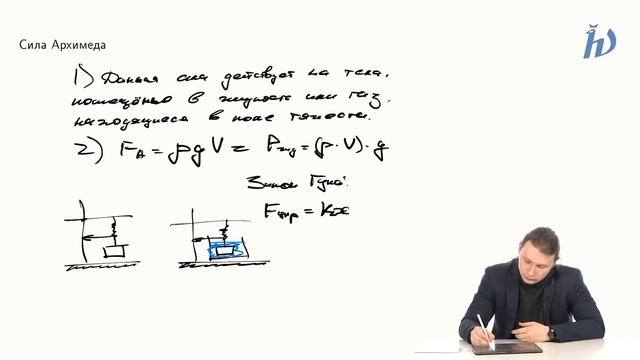 Сила Архимеда
1) Данная сила действует на тела,
помещённые в жидкость или газ,
находящиеся в поле тяжести.
2) F_A = ρgV = P_жид = (ρ·V)·g
Закон Гука:
F_упр = kx